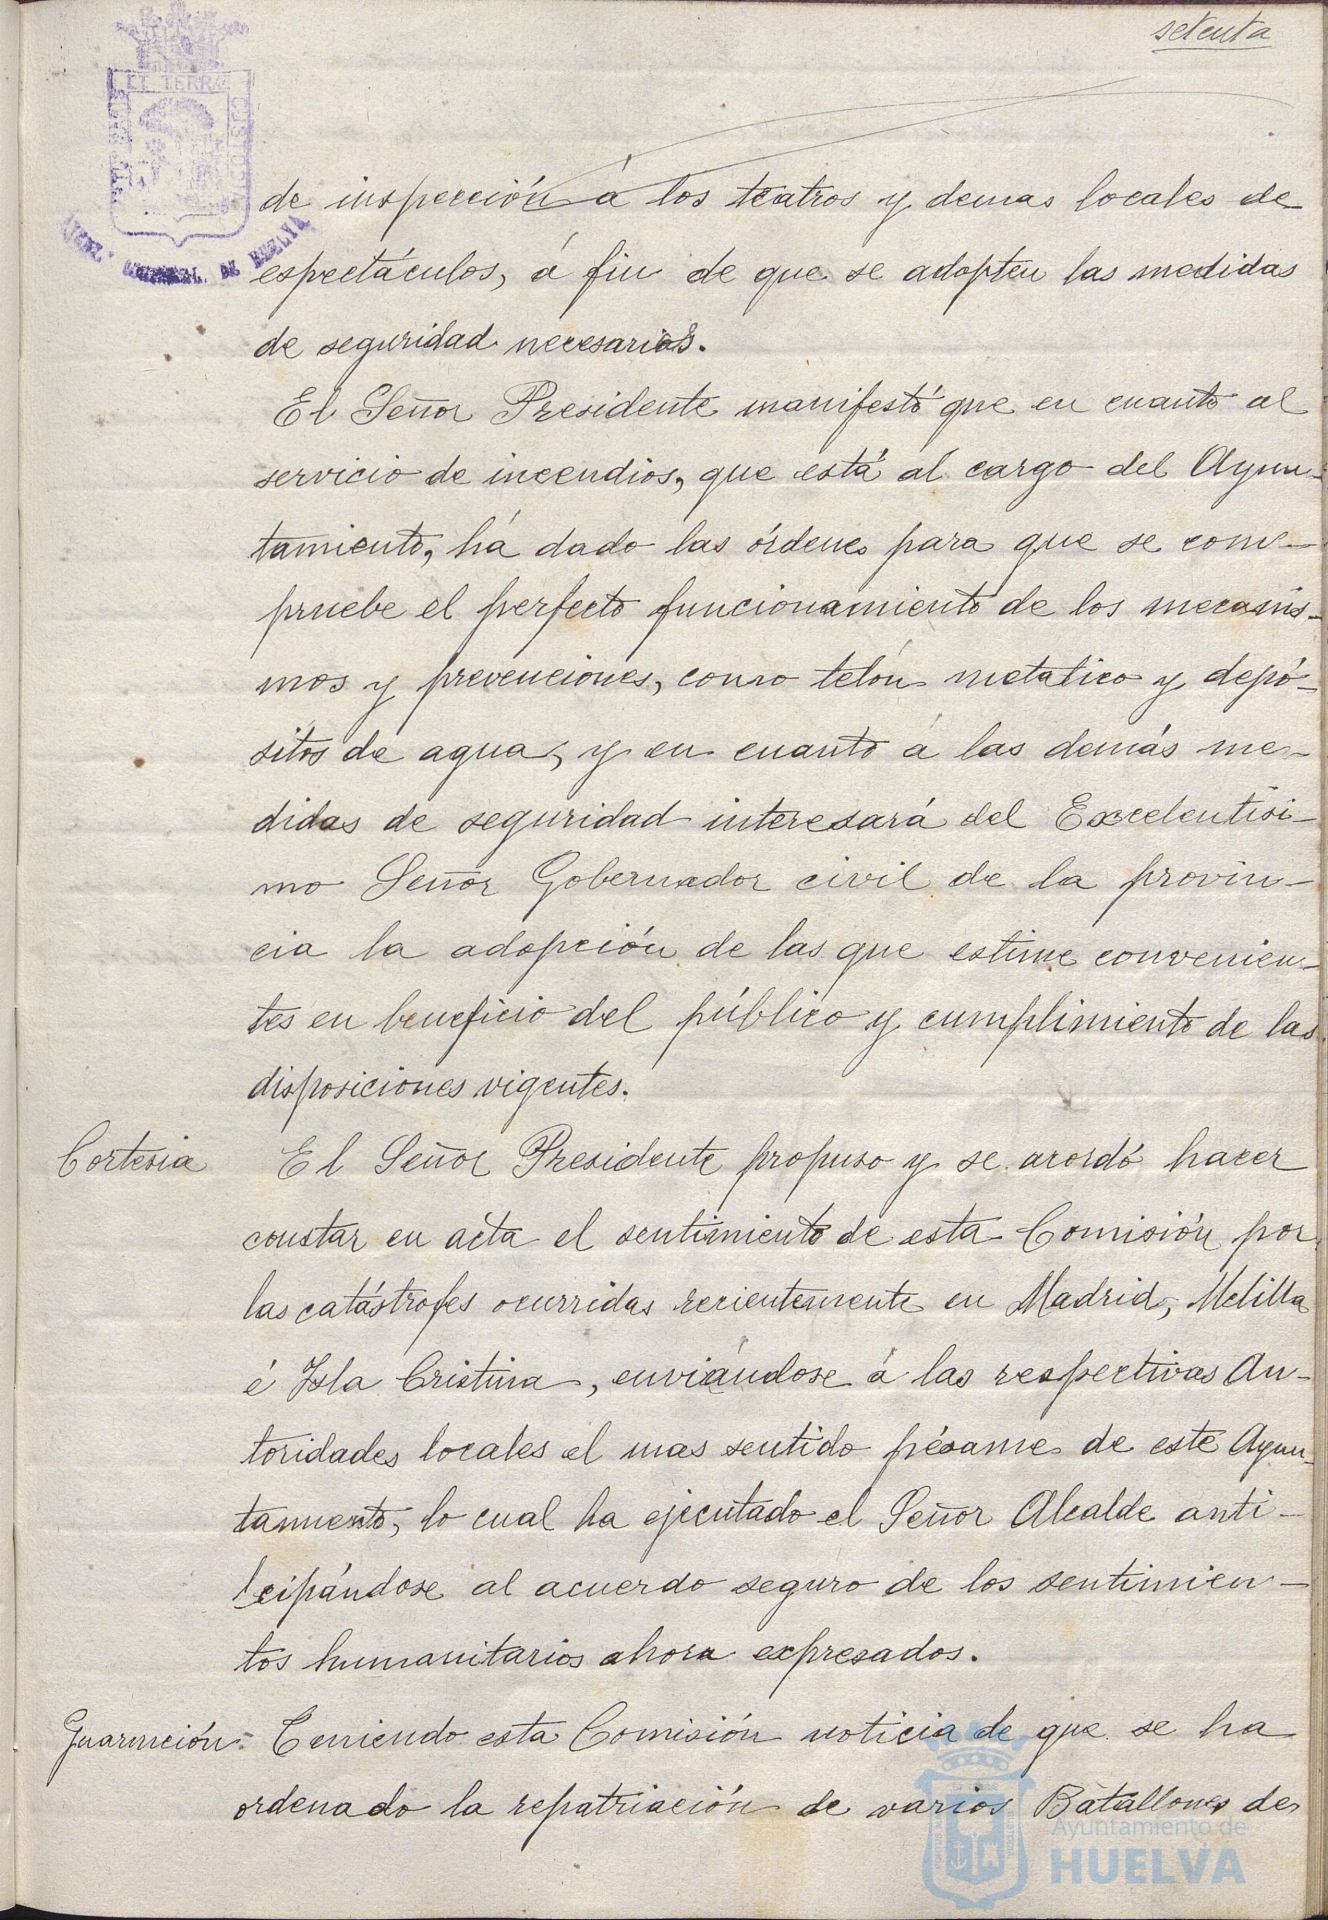 setenta
de inspección á los teatros y demas locales de
espectáculos, á fin de que se adopten las medidas
de seguridad necesarias.
El Señor Presidente manifestó que en cuanto al
servicio de incendios, que está al cargo del Ayun-
tamiento, há dado las órdenes para que se com-
pruebe el perfecto funcionamiento de los mecanis-
mos y prevenciones, como telón metalico y depó-
sitos de agua, y en cuanto á las demás me-
didas de seguridad interesará del Excelentisi-
mo Señor Gobernador civil de la provin-
cia la adopción de las que estime convenien-
tes en beneficio del público y cumplimiento de las
disposiciones vigentes.
Cortesia El Señor Presidente propuso y se acordó hacer
constar en acta el sentimiento de esta Comisión por
las catástrofes ocurridas recientemente en Madrid, Melilla
é Isla Cristina, enviándose á las respectivas Au-
toridades locales el mas sentido pésame de este Ayun-
tamiento, lo cual ha ejecutado el Señor Alcalde anti-
cipándose al acuerdo seguro de los sentimien-
tos humanitarios ahora expresados.
Guarnición. Teniendo esta Comisión noticia de que se ha
ordenado la repatriación de varios Batallones de
Ayuntamiento de
HUELVA